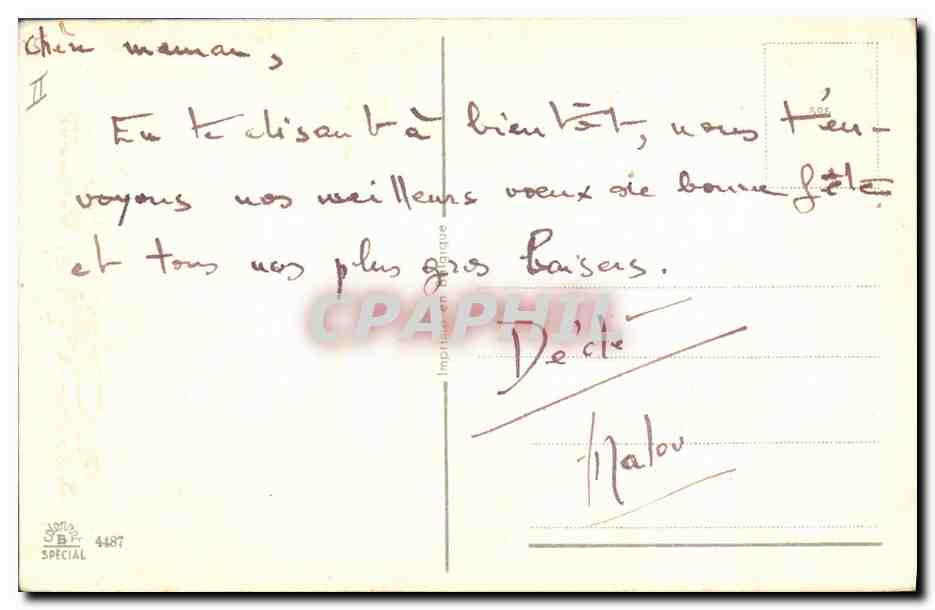 chère maman,
II
En te disant à bientôt, nous t'en-
voyons nos meilleurs voeux de bonne fête
et tous nos plus gros baisers.
Imprimé en Belgique
CPAPHIL
Malou
B
SPÉCIAL
4487